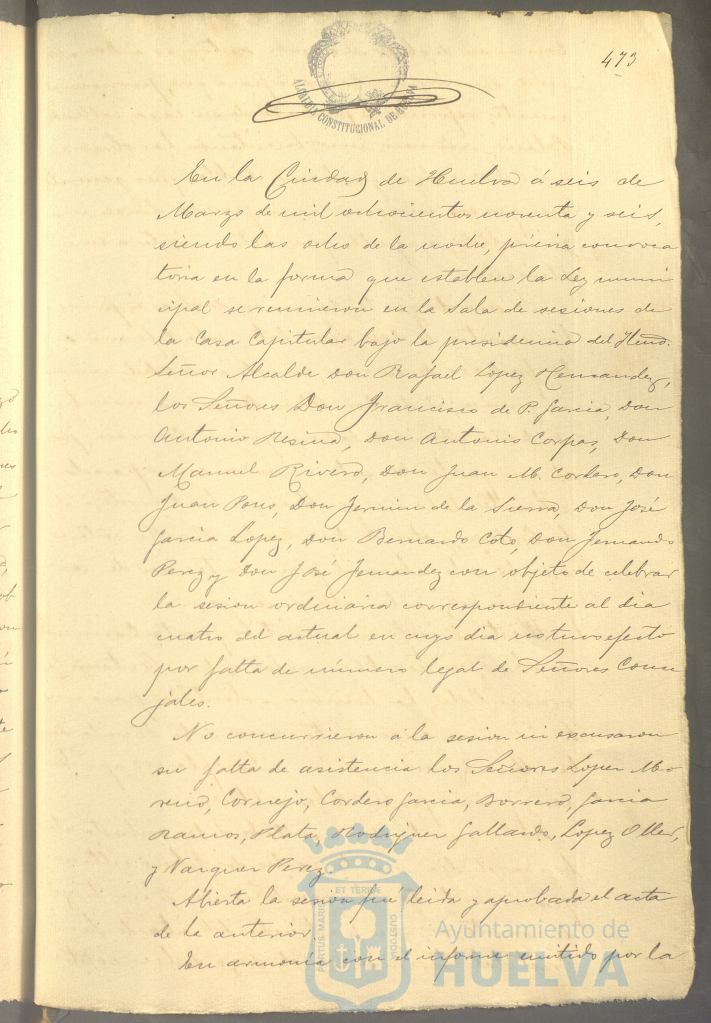 473
ALCALDIA CONSTITUCIONAL DE HUELVA
En la Ciudad de Huelva á seis de
Marzo de mil ochocientos noventa y seis,
siendo las ocho de la noche, prévia convoca
toria en la forma que establece la Ley muni
cipal se reunieron en la Sala de sesiones de
la Casa Capitular bajo la presidencia del Iltmo.
Señor Alcalde Don Rafael Lopez Hernandez,
los Señores Don Francisco de P. Garcia, Don
Antonio Resina, Don Antonio Corpas, Don
Manuel Rivero, Don Juan M. Cordero, Don
Juan Pons, Don Fermin de la Sierra, Don José
Garcia Lopez, Don Bernardo Coto, Don Fernando
Perez y Don José Fernandez con objeto de celebrar
la sesion ordinaria correspondiente al dia
cuatro del actual en cuyo dia no tuvo efecto
por falta de número legal de Señores Conce
jales.
No concurrieron á la sesion ni excusaron
su falta de asistencia los Señores Lopez Mo
reno, Cornejo, Cordero Garcia, Borrero, Garcia
Ramos, Plata, Rodriguez Gallardo, Lopez Oller,
y Vazquez Perez.
Abierta la sesion fué leida y aprobada el acta
de la anterior
En armonía con el informe emitido por la
PORTUS MARIS ET TERRE CUSTODIA
Ayuntamiento de
HUELVA